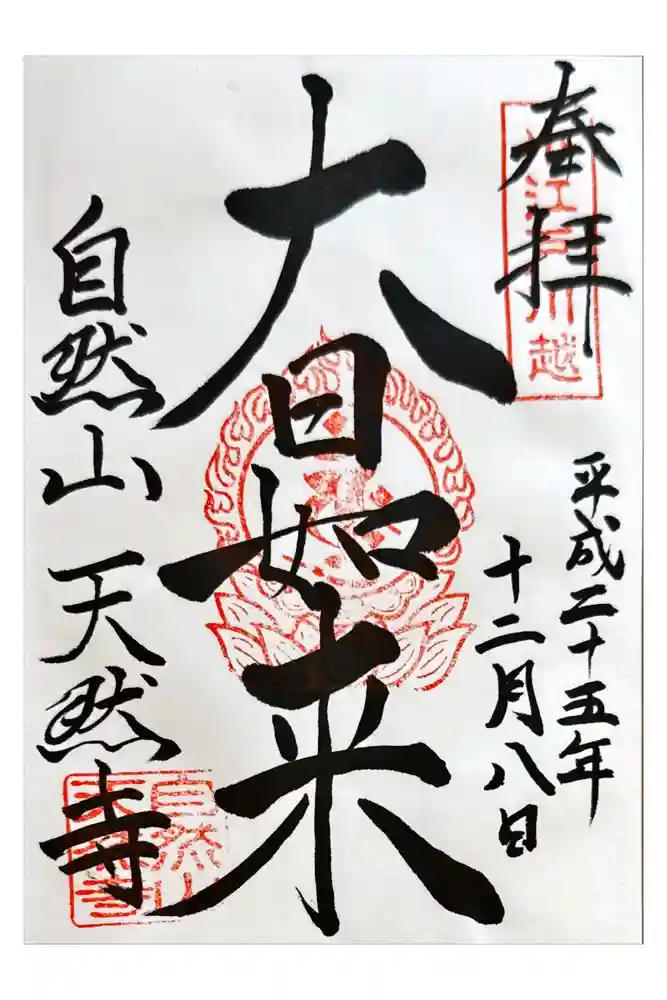 奉拝
江戸川越
平成二十五年
十二月八日
大日如来
自然山天然寺
自然山
天然寺